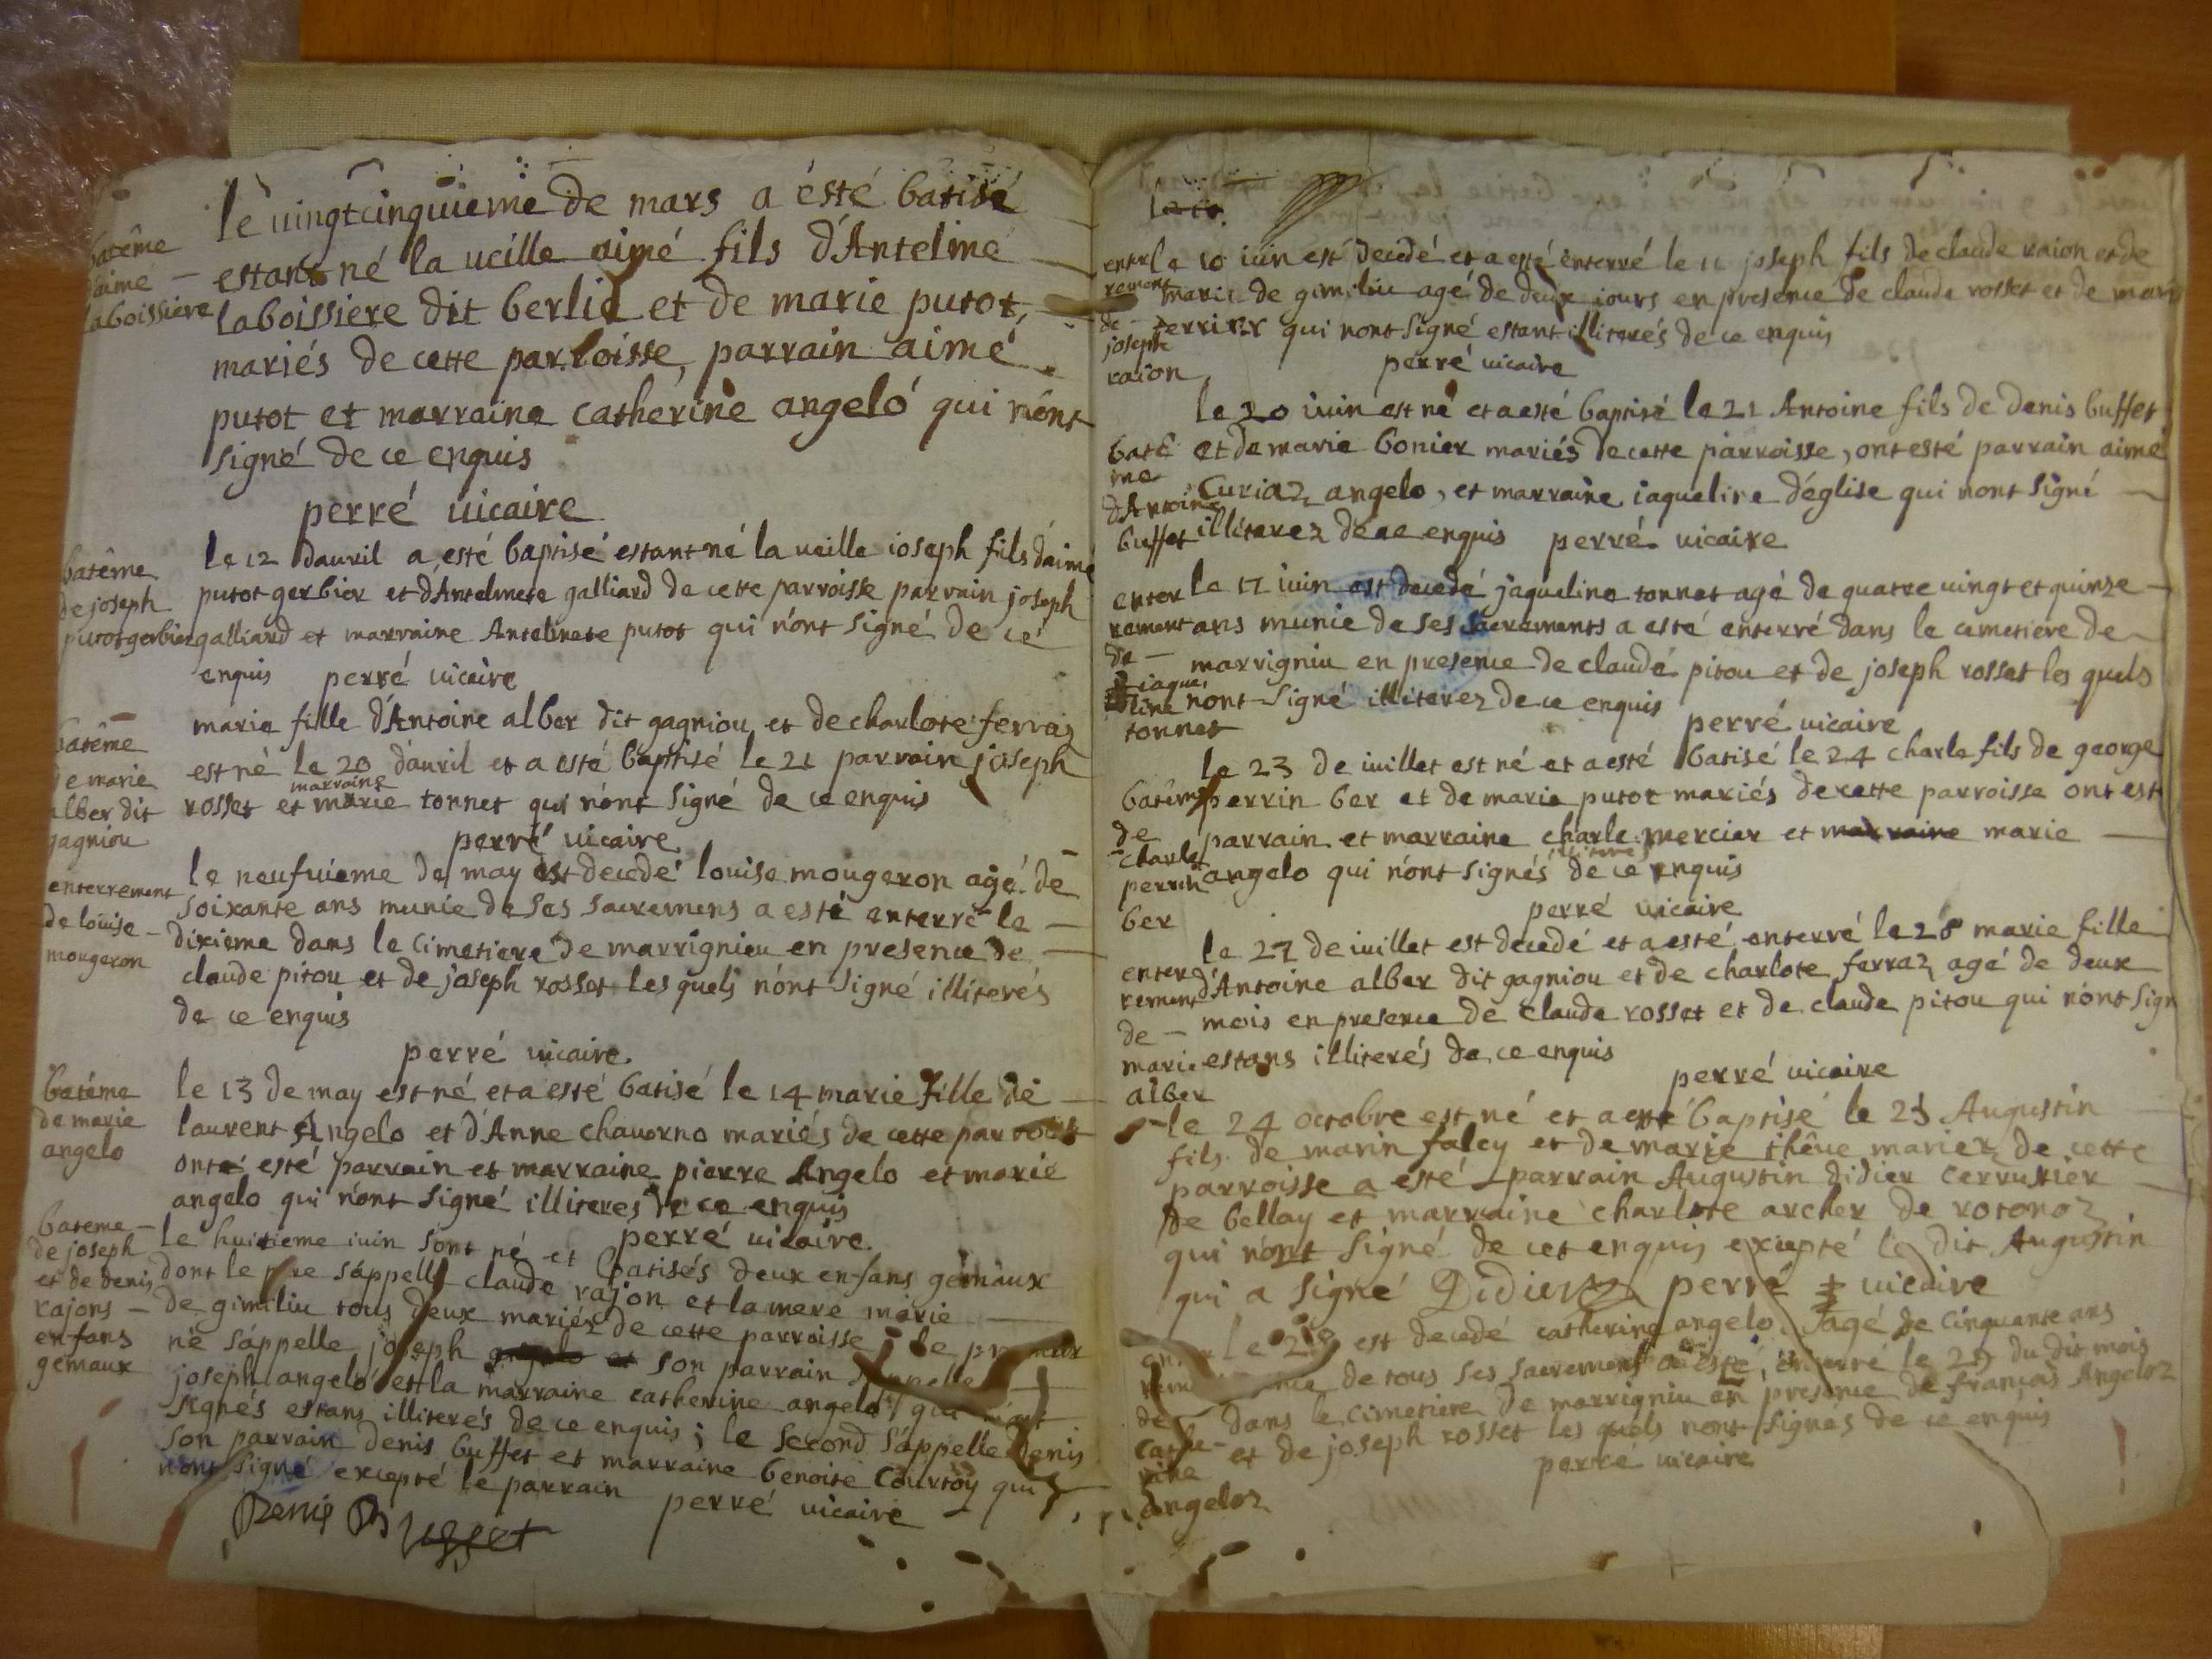 batême
d'aimé —
laboissiere
le uingtcinquieme de mars a ésté batisé
estant né la ueille aimé fils d'Antelme
laboissiere dit berlie et de marie putot,
mariés de cette parroisse, parrain aimé
putot et marraine catherine angeló qui n'ont
signé de ce enquis
perré uicaire
batême
de joseph
putot gerbier
le 12 dauril a esté baptisé estant né la ueille ioseph fils daimé
putot gerbier et d'Antelmete galliard de cette parroisse parrain joseph
galliard et marraine Antelmete putot qui n'ont signé de ce
enquis perré uicaire
batême
de marie
alber dit
gagniou
marie fille d'Antoine alber dit gagniou et de charlote ferraz
est né le 20 d'auril et a esté baptisé le 21 parrain joseph
marraine
rosset et marie tonnet qui n'ont signé de ce enquis
perré uicaire
enterrement
de louise —
mougeron
le neufuieme de may est decedé louise mougeron agé de
soixante ans munie de ses sacremens a esté enterré le —
dixieme dans le cimetiere de marrignieu en presence de —
claude pitou et de joseph rosset les quels n'ont signé illiterés
de ce enquis
perré uicaire.
batême
de marie
angelo
le 13 de may est né et a esté batisé le 14 marie fille de —
laurent Angelo et d'Anne chauorno mariés de cette parroisse
ont esté parrain et marraine pierre Angelo et marie
angelo qui n'ont signé illiteres de ce enquis
perré uicaire.
bateme —
de joseph
et de denis
rajons —
enfans
gemaux
le huitieme iuin sont né et batisés deux enfans gemaux
dont le pere s'appelle claude rajon et la mere marie —
de gimiliu tous deux mariéz de cette parroisse le premier
né s'appelle joseph angelo et son parrain s'appelle
joseph angeló et la marraine catherine angelo qui n'ont
signés estans illiterés de ce enquis; le second s'appelle denis
son parrain denis buffet et marraine benoite Courtoy qui
n'ont signé excepté le parrain perré uicaire
Denis Buffet
le 10
enter
rement
de —
joseph
raion
le 10 iuin est decedé et a esté enterré le 11 joseph fils de claude raion et de
marie de gimiliu agé de deux iours en presence de claude rosset et de marie
perrier qui nont signé estant illiterés de ce enquis
perré uicaire
batê
me
d'Antoine
buffet
le 20 iuin est né et a esté baptisé le 21 Antoine fils de denis buffet
et de marie bonier mariés de cette parroisse, ont esté parrain aimé
Curiaz angelo, et marraine iaqueline d'église qui nont signé —
illiterez de ce enquis perré uicaire
enter
rement
de —
iaque
line
tonnet
le 17 iuin est decedé jaqueline tonnet agé de quatre uingt et quinze —
ans munie de ses sacrements a esté enterré dans le cimetiere de
marrigniu en presence de claude pitou et de joseph rosset les quels
nont signé illiterez de ce enquis
perré uicaire
batême
de
charle
perrin
ber
le 23 de iuillet est né et a esté batisé le 24 charle fils de george
perrin ber et de marie putot mariés de cette parroisse ont esté
parrain et marraine charle mercier et marraine marie —
illiteres
angelo qui n'ont signés de ce enquis
perré uicaire
enter
rement
de —
marie
alber
le 27 de iuillet est decedé et a esté enterré le 28 marie fille
d'Antoine alber dit gagniou et de charlote ferraz agé de deux
mois en presence de claude rosset et de claude pitou qui n'ont sign
estans illiterés de ce enquis
perré uicaire
le 24 octobre est né et a esté baptisé le 25 Augustin
fils de marin falcy et de marie thêue mariez de cette
parroisse a esté parrain Augustin didier cerrurier —
de bellay et marraine charlote archer de rotonoz
qui n'ont signé de cet enquis excepté le dit Augustin
qui a signé Didier perré uicaire
enter
rem
de
cathe-
rine
angeloz
le est decedé catherine angelo agé de cinquante ans
de tous ses sacrements a esté enterré le 29 du dit mois
dans le cimetiere de marrigniu en presence de françois Angeloz
et de joseph rosset les quels nont signés de ce enquis
perré uicaire